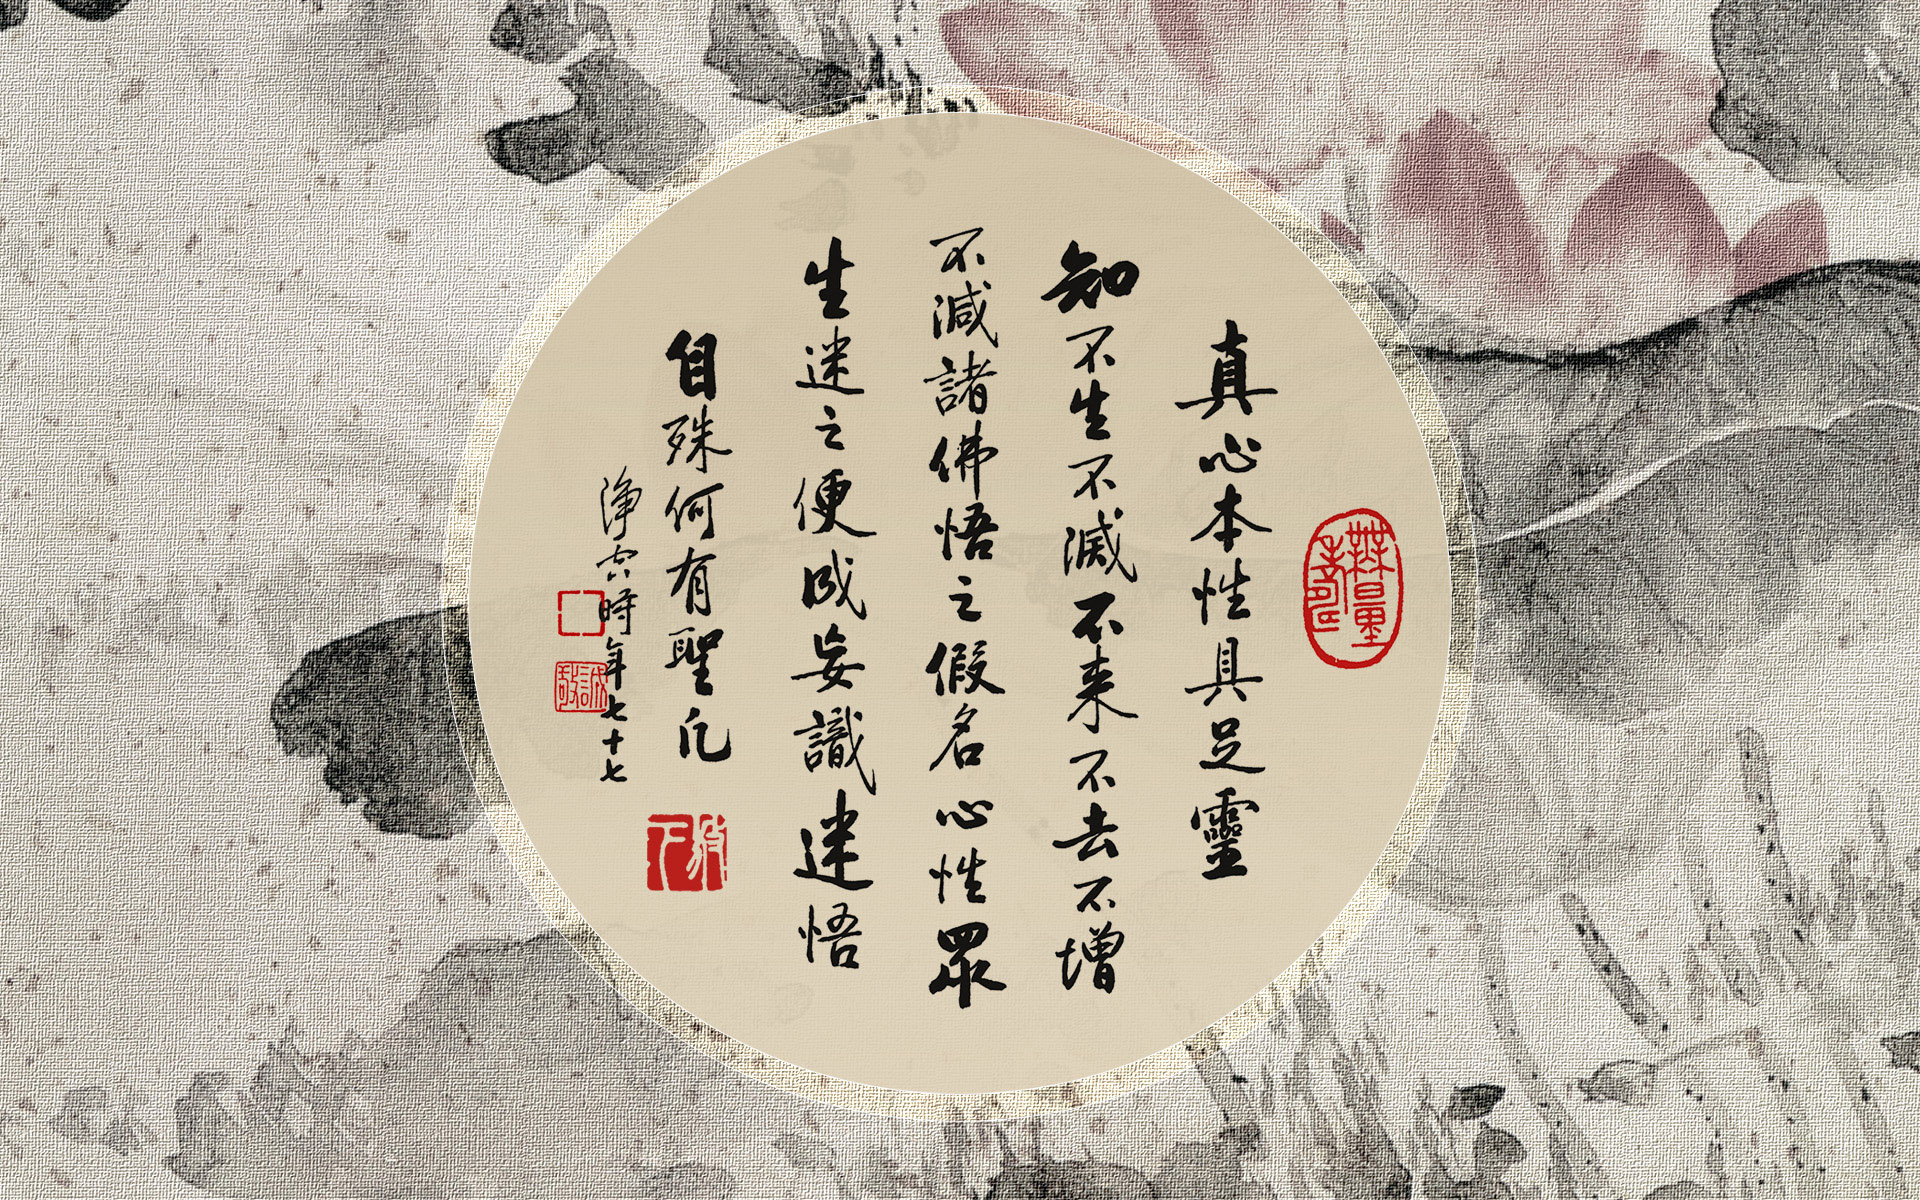 真心本性具足靈
知不生不滅不来不去不增
不減諸佛悟之假名心性眾
生迷之便成妄識迷悟
自殊何有聖凡
淨空時年七十七
無量
誠敬